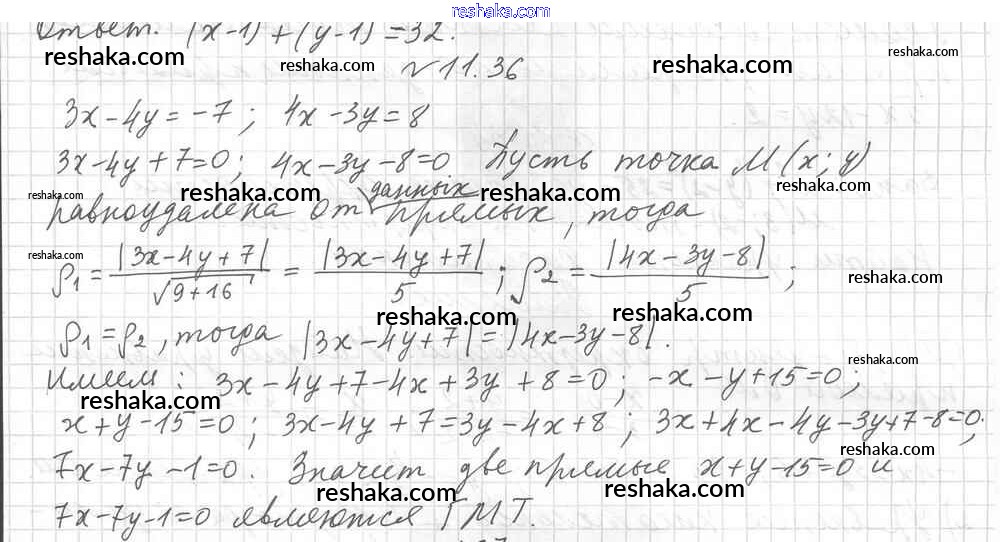 reshaka.com
Ответ. (x-1)+(y-1)=32.
reshaka.com reshaka.com reshaka.com
reshaka.com №11.36 reshaka.com
3x-4y=-7; 4x-3y=8
3x-4y+7=0; 4x-3y-8=0. Пусть точка M(x;y)
reshaka.com reshaka.com данных reshaka.com reshaka.com
равноудалена от прямых, тогда
ρ1=|3x-4y+7|/√9+16=|3x-4y+7|/5; ρ2=|4x-3y-8|/5;
reshaka.com reshaka.com reshaka.com
reshaka.com reshaka.com
ρ1=ρ2, тогда |3x-4y+7|=|4x-3y-8|.
reshaka.com
Имеем: 3x-4y+7-4x+3y+8=0; -x-y+15=0;
reshaka.com reshaka.com
x+y-15=0; 3x-4y+7=3y-4x+8; 3x+4x-4y-3y+7-8=0;
reshaka.com
7x-7y-1=0. Значит две прямые x+y-15=0 и
reshaka.com reshaka.com
7x-7y-1=0 являются ГМТ.